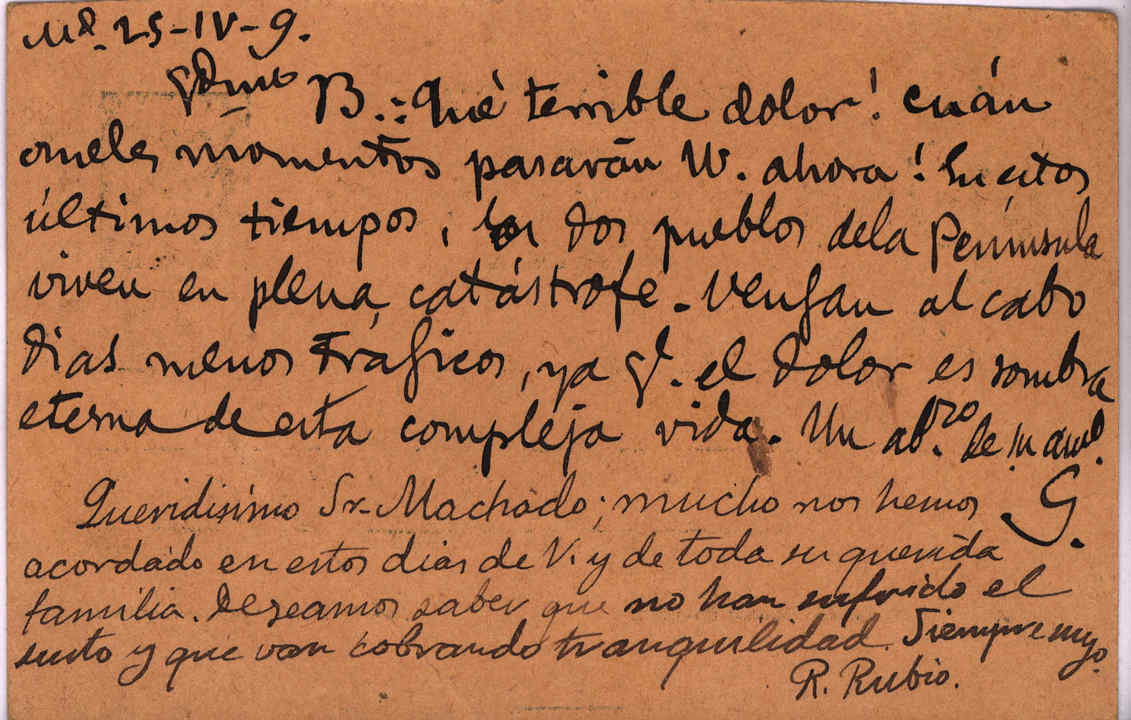 Md. 25-IV-9.
Qdmo B.: Qué terrible dolor! cuán
crueles momentos pasarán VV. ahora! En estos
últimos tiempos, los dos pueblos de la Península
viven en plena catástrofe. Vengan al cabo
dias menos trágicos, ya q. el dolor es sombra
eterna de esta compleja vida. Un ab.zo de su am.
G.
Queridisimo Sr. Machado; mucho nos hemos
acordado en estos dias de V. y de toda su querida
familia. Deseamos saber que no han sufrido el
susto y que van cobrando tranquilidad. Siempre suyo.
R. Rubio.